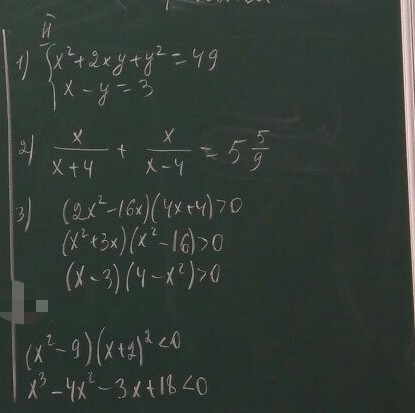 II
1) { x² + 2xy + y² = 49
x - y = 3
2) x/(x+4) + x/(x-4) = 5 5/9
3) (2x² - 16x)(4x+4) > 0
(x² + 3x)(x² - 16) > 0
(x - 3)(4 - x²) > 0
(x² - 9)(x + 2)² < 0
x³ - 4x² - 3x + 18 < 0